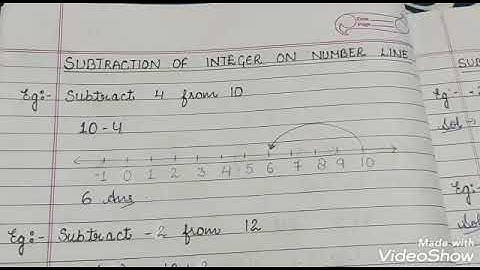 SUBTRACTION OF INTEGER ON NUMBER LINE
Eg:- Subtract 4 from 10
10-4
-1 0 1 2 3 4 5 6 7 8 9 10
6 Ans
Eg:- Subtract -2 from 12
Eg:-
Sol
Eg:-
Made with
VideoShow